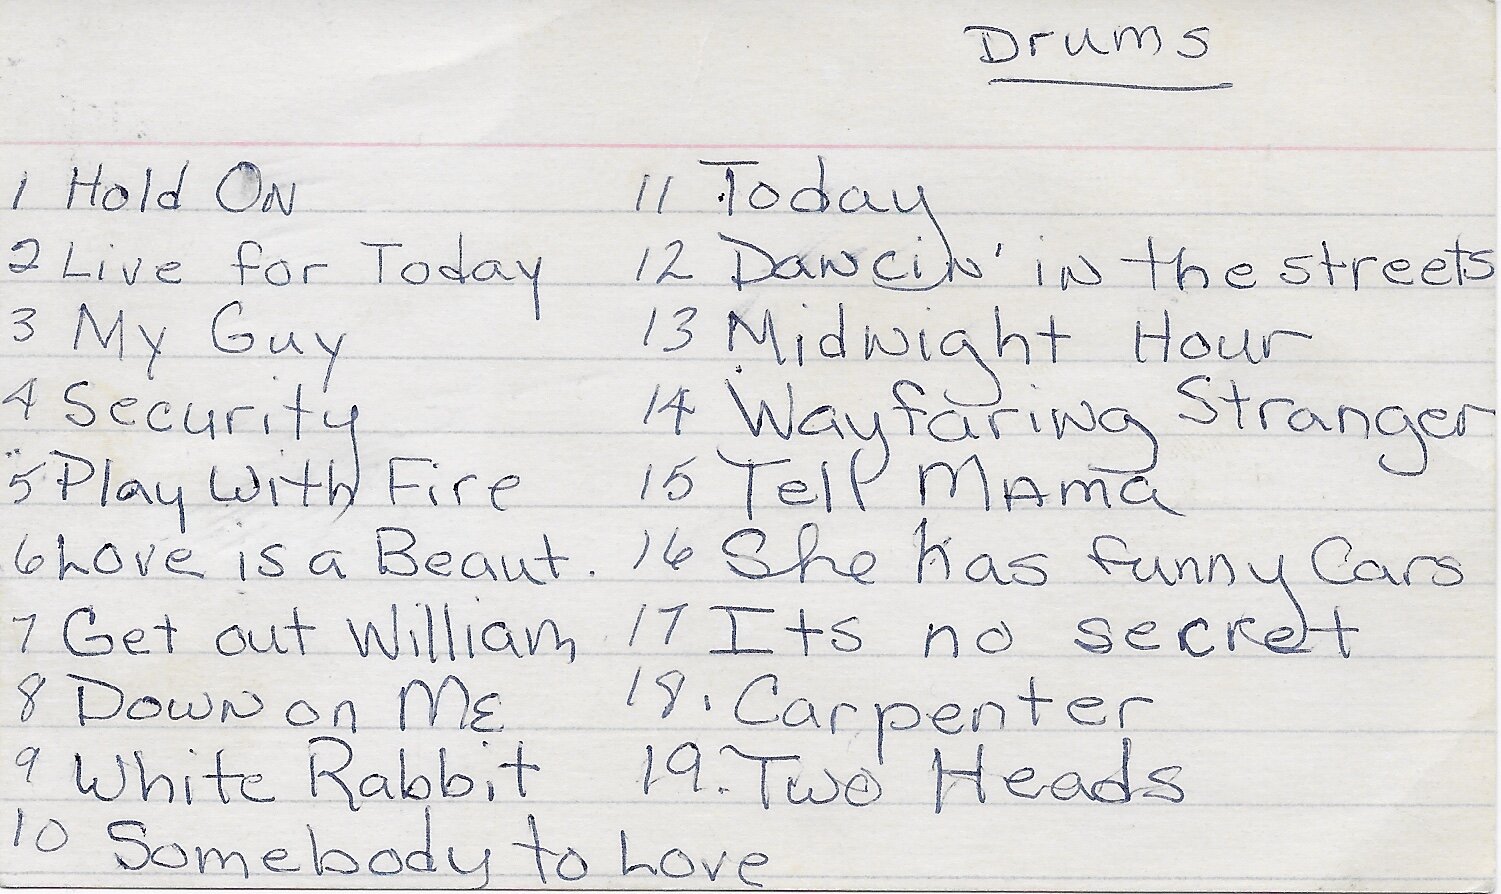 Drums
1 Hold On
2 Live for Today
3 My Guy
4 Security
5 Play With Fire
6 Love is a Beaut.
7 Get out William
8 Down on Me
9 White Rabbit
10 Somebody to Love
11 Today
12 Dancin' in the streets
13 Midnight Hour
14 Wayfaring Stranger
15 Tell Mama
16 She has funny Cars
17 Its no secret
18. Carpenter
19. Two Heads